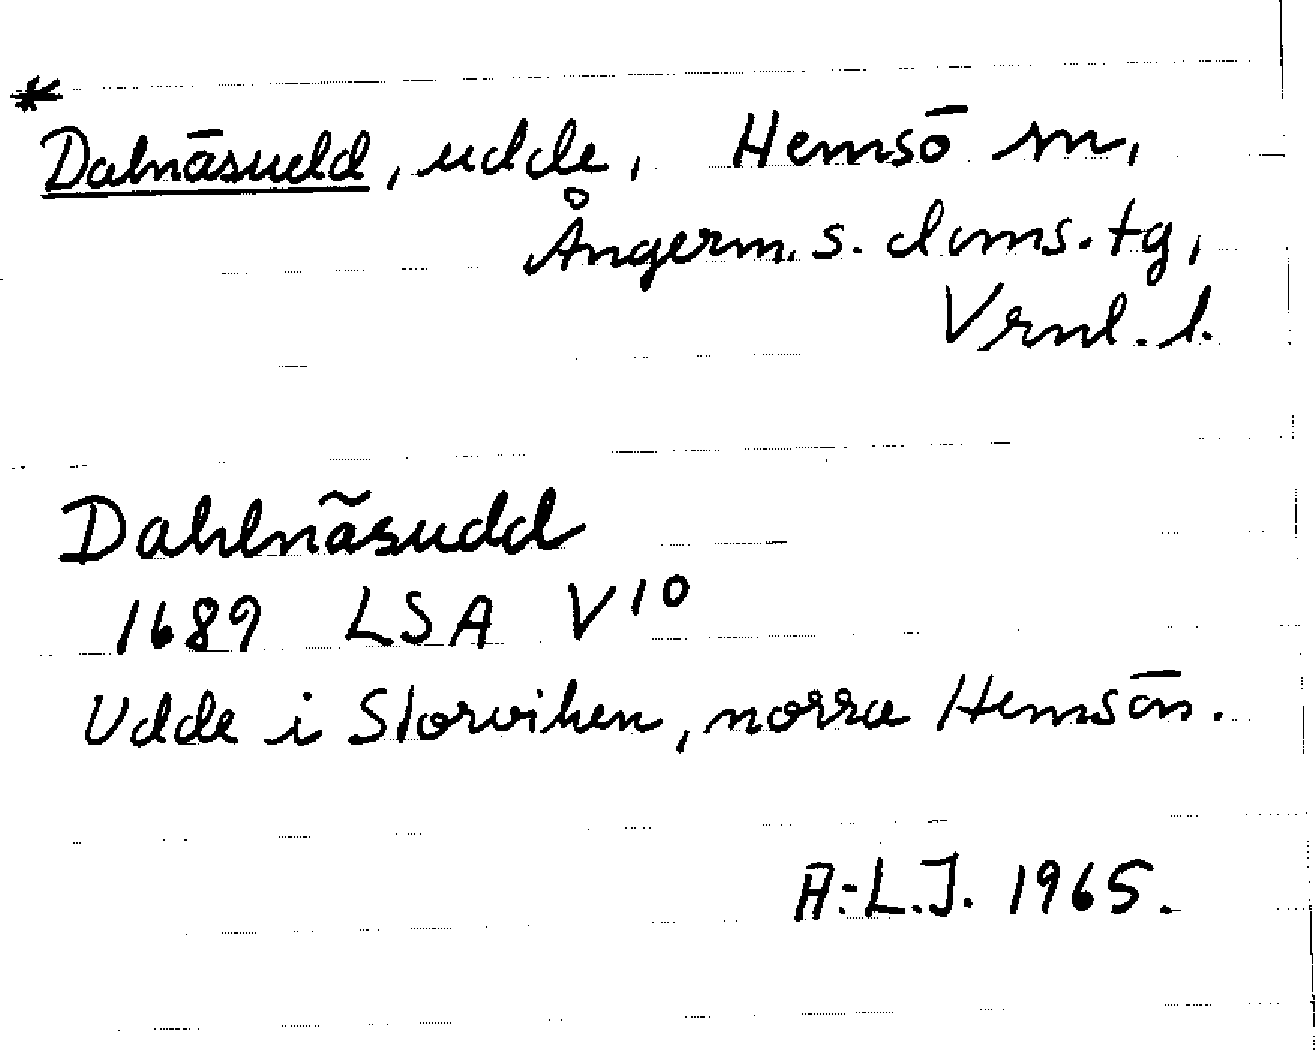 *
Dalnäsudd, udde, Hemsö sn,
Ångerm. s. doms. tg,
Vrnl. l.
Dahlnäsudd
1689 LSA V10
Udde i Storviken, norra Hemsön.
A.-L.J. 1965.